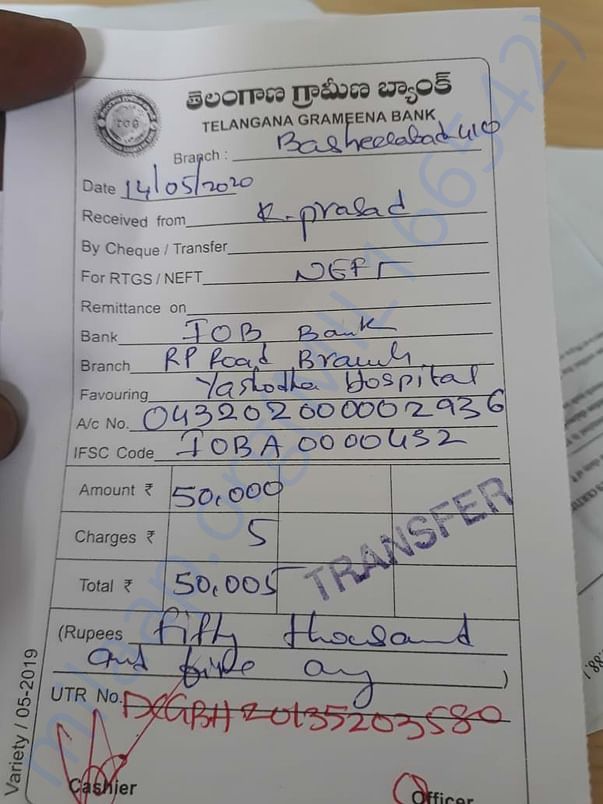 తెలంగాణ గ్రామీణ బ్యాంక్
TELANGANA GRAMEENA BANK
Branch : Basheerabad 410
Date 14/05/2020
Received from K. prasad
By Cheque / Transfer
For RTGS / NEFT NEFT
Remittance on
Bank IOB Bank
Branch RP Road Branch
Favouring Yashodha Hospital
A/c No. 043202000002936
IFSC Code IOBA0000432
Amount ₹ 50,000
Charges ₹ 5
Total ₹ 50,005
TRANSFER
(Rupees fifty thousand
and five )
UTR No. DCGBH20135203580
Cashier Officer
Variety / 05-2019